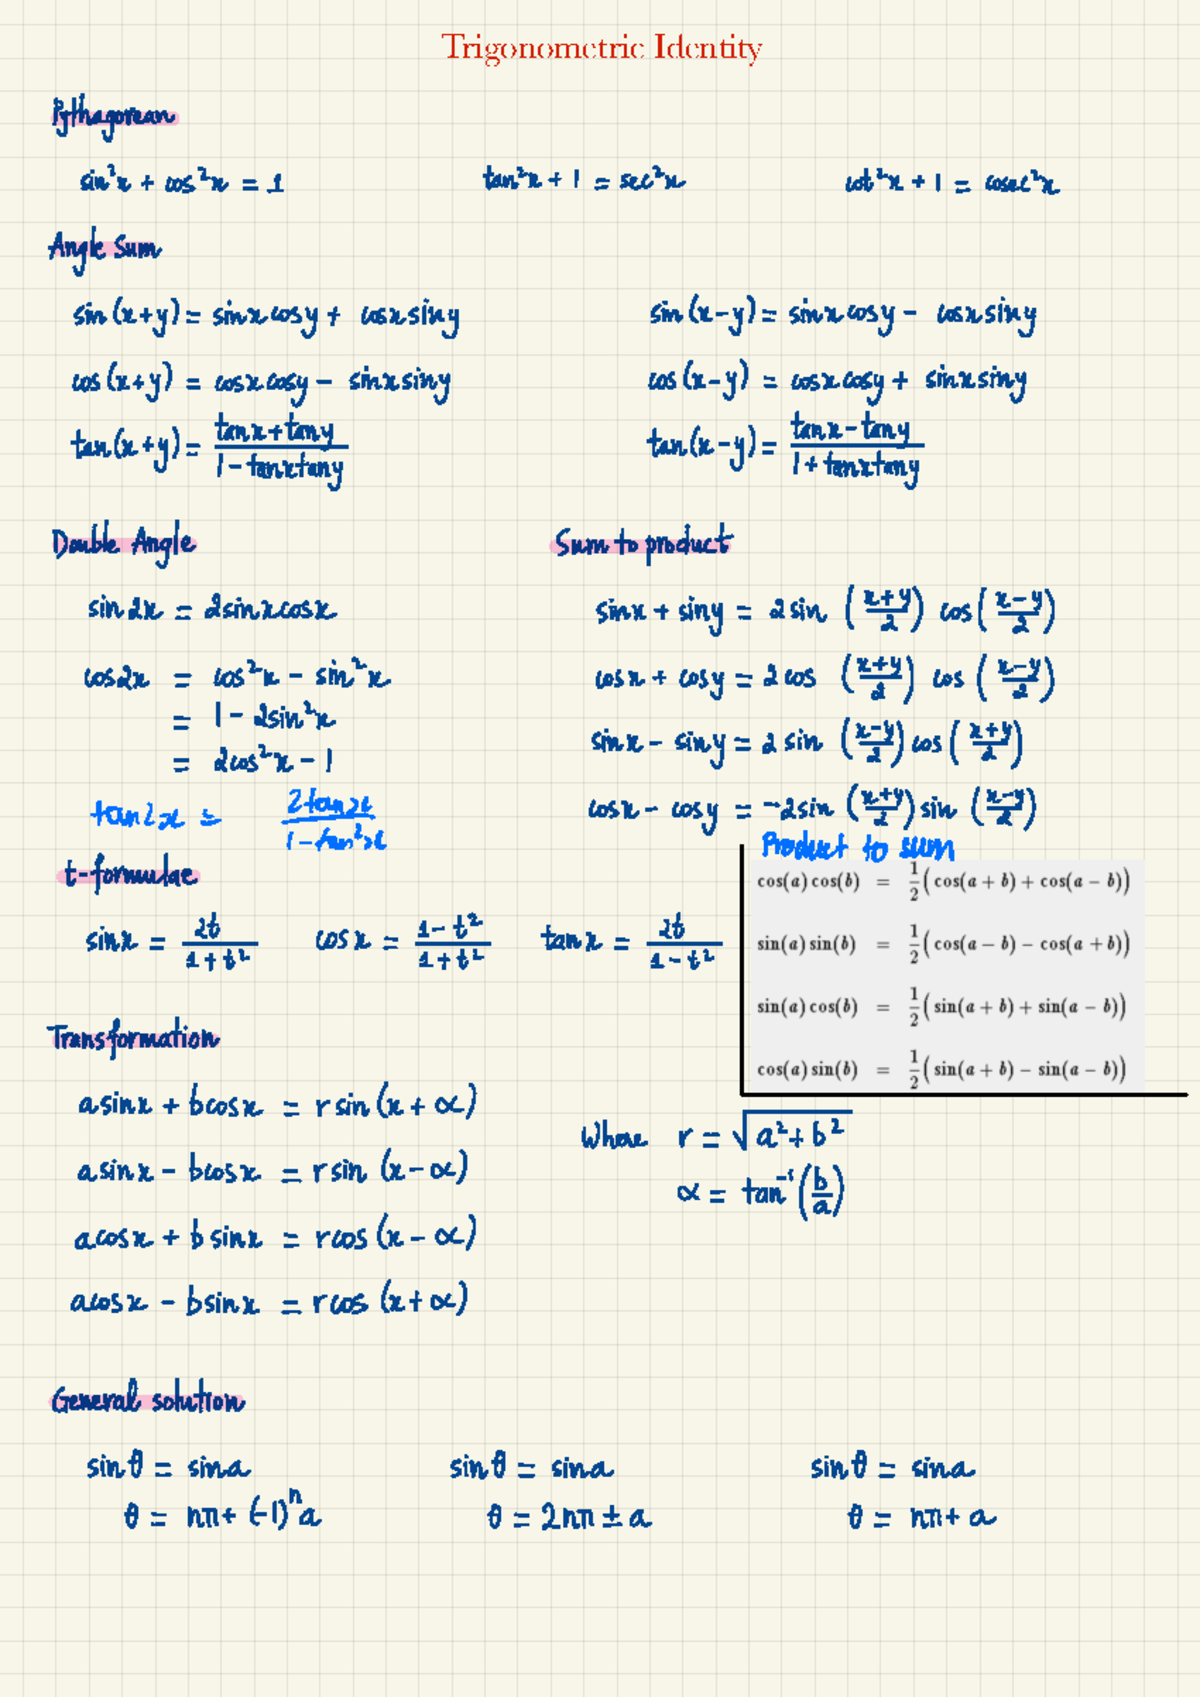 Trigonometric Identity
Pythagorean
sin²x + cos²x = 1
tan²x + 1 = sec²x
cot²x + 1 = cosec²x
Angle Sum
sin(x+y) = sinxcosy + cosxsiny
sin(x-y) = sinxcosy - cosxsiny
cos(x+y) = cosxcosy - sinxsiny
cos(x-y) = cosxcosy + sinxsiny
tan(x+y) = (tanx+tany)/(1-tanxtany)
tan(x-y) = (tanx-tany)/(1+tanxtany)
Double Angle
sin2x = 2sinxcosx
cos2x = cos²x - sin²x
= 1 - 2sin²x
= 2cos²x - 1
tan2x = 2tanx/(1-tan²x)
Sum to product
sinx + siny = 2sin ((x+y)/2) cos((x-y)/2)
cosx + cosy = 2cos ((x+y)/2) cos ((x-y)/2)
sinx - siny = 2sin ((x-y)/2) cos((x+y)/2)
cosx - cosy = -2sin ((x+y)/2) sin ((x-y)/2)
t-formulae
sinx = 2t/(1+t²)
cosx = (1-t²)/(1+t²)
tanx = 2t/(1-t²)
Product to sum
cos(a)cos(b) = 1/2(cos(a+b)+cos(a-b))
sin(a)sin(b) = 1/2(cos(a-b)-cos(a+b))
sin(a)cos(b) = 1/2(sin(a+b)+sin(a-b))
cos(a)sin(b) = 1/2(sin(a+b)-sin(a-b))
Transformation
asinx + bcosx = rsin(x+α)
asinx - bcosx = rsin (x-α)
acosx + bsinx = rcos (x-α)
acosx - bsinx = rcos (x+α)
Where r = √(a²+b²)
α = tan⁻¹(b/a)
General solution
sinθ = sina
θ = nπ + (-1)ⁿa
sinθ = sina
θ = 2nπ ± a
sinθ = sina
θ = nπ + a